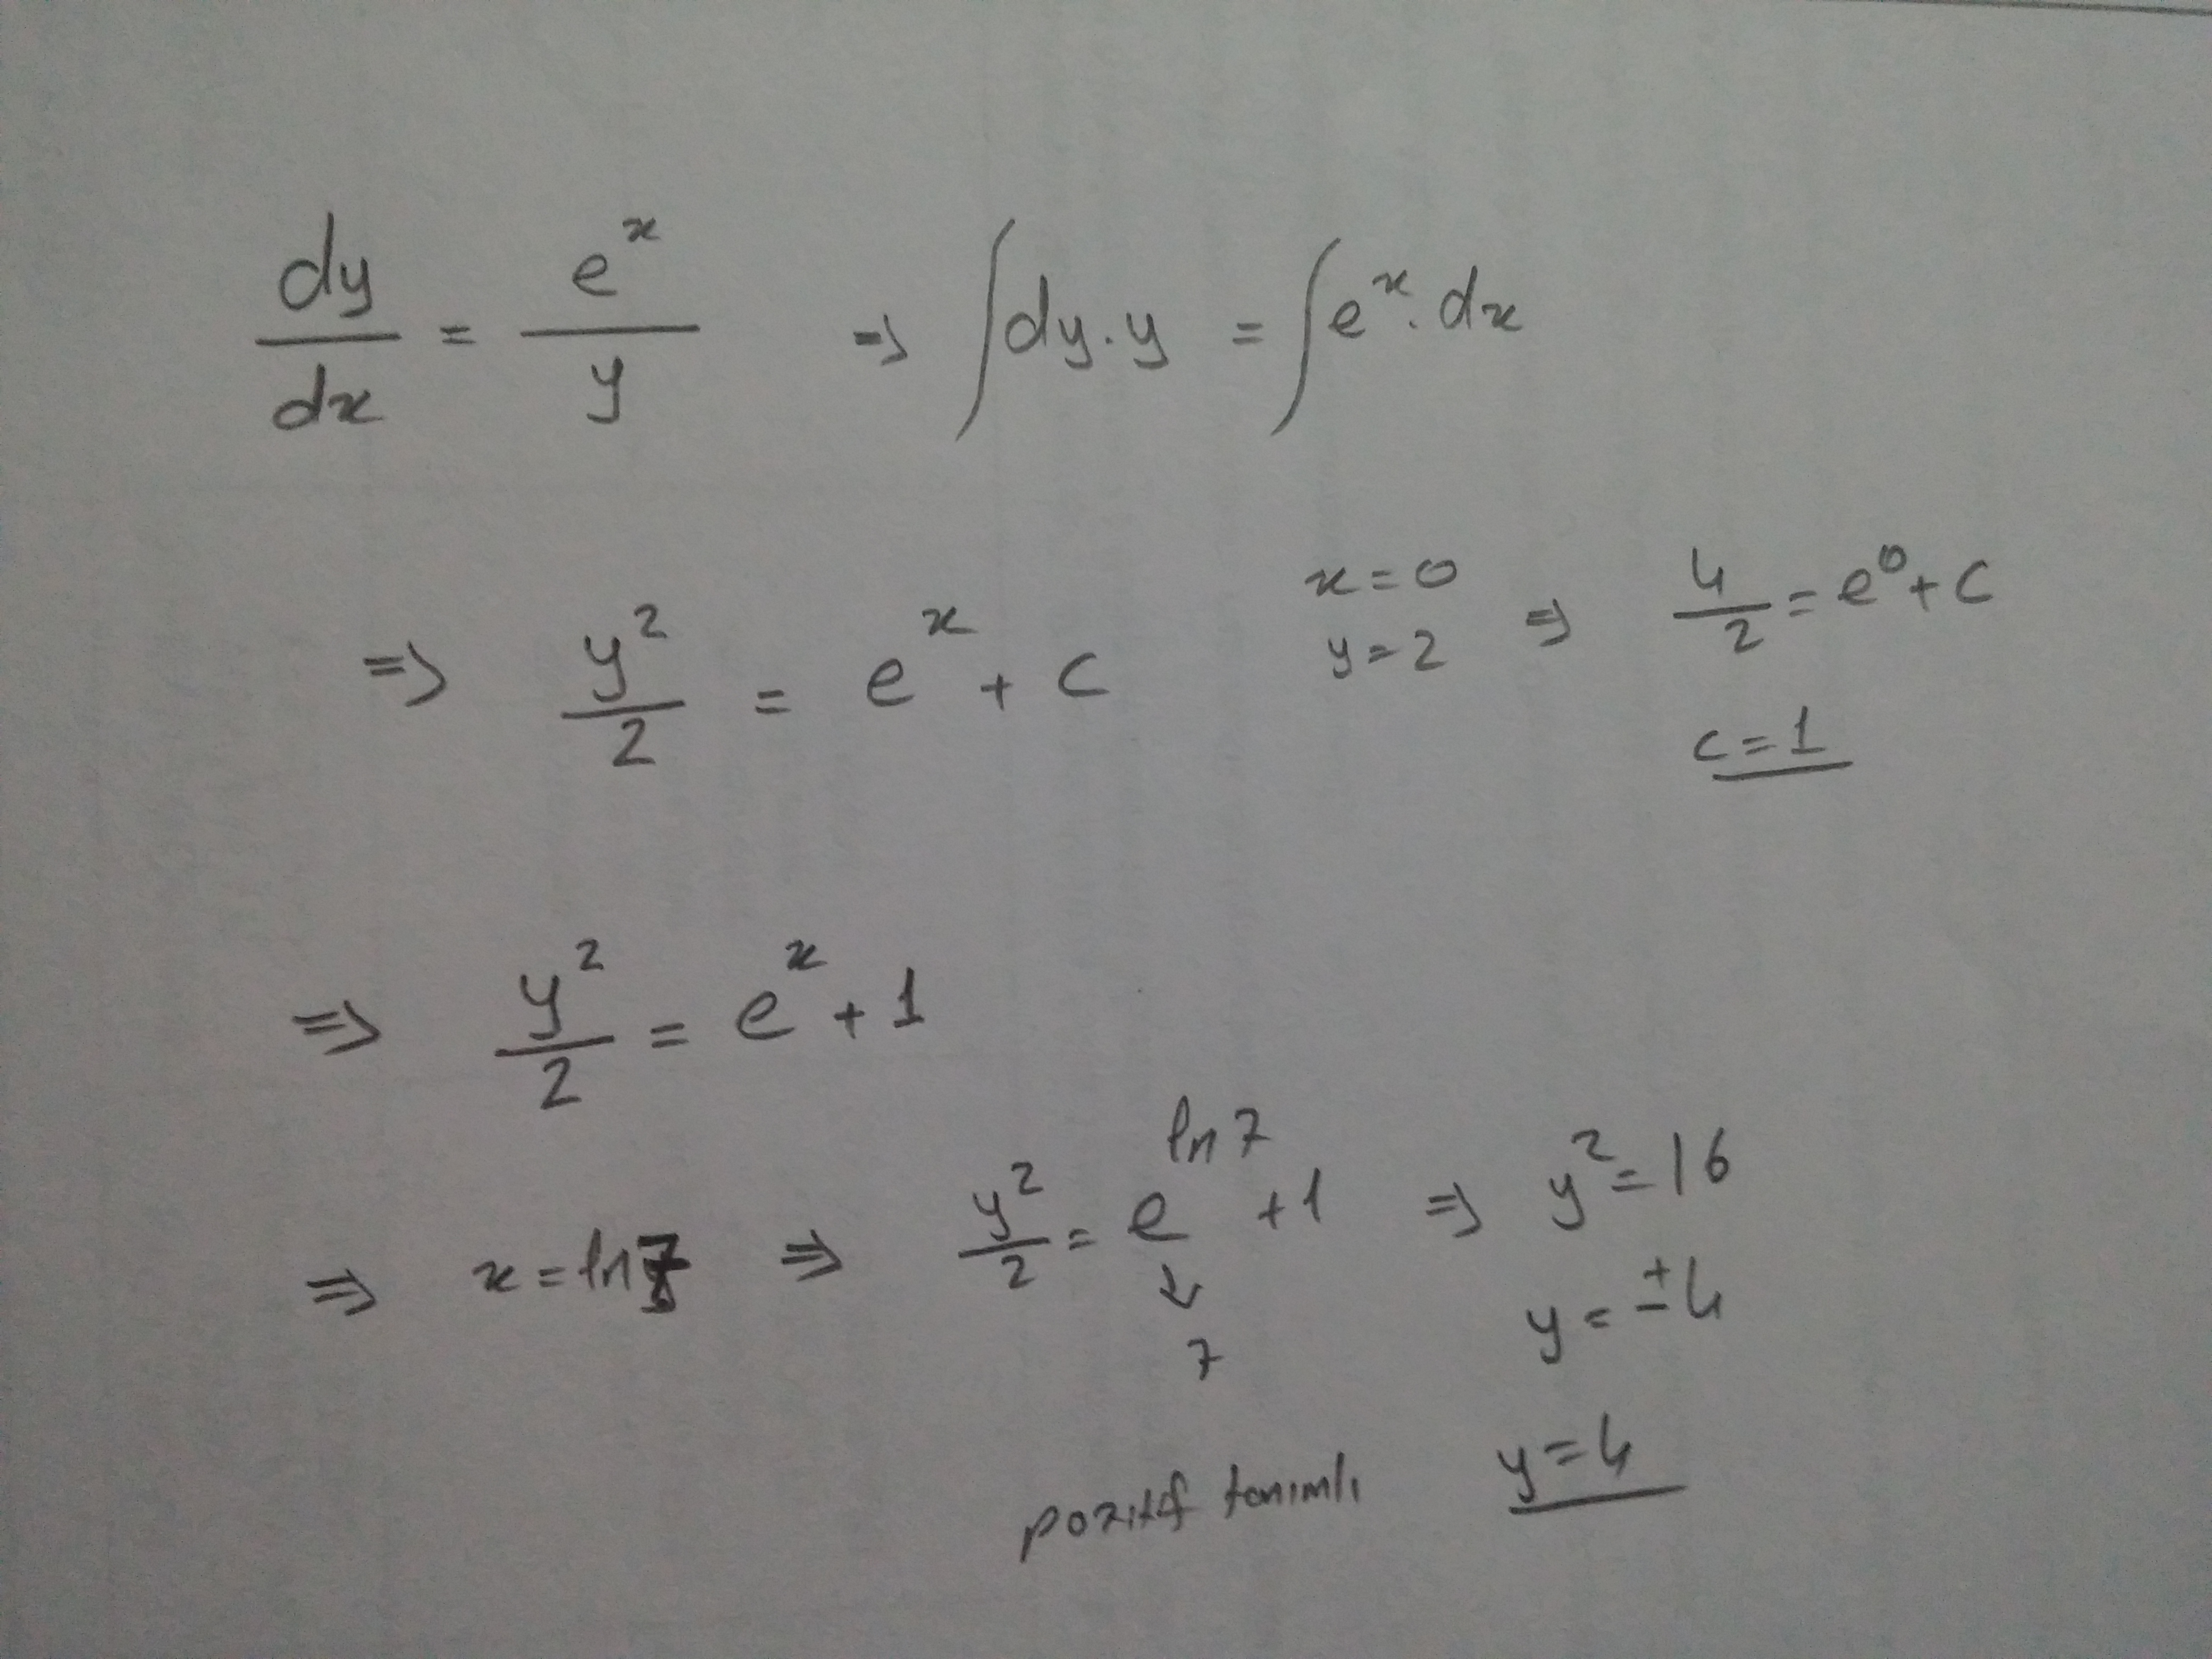 dy/dx = e^x/y ⇒ ∫dy.y = ∫e^x.dx
⇒ y²/2 = e^x + c x=0 y=2 ⇒ 4/2 = e^0 + c
c=1
⇒ y²/2 = e^x + 1
⇒ x=ln7 ⇒ y²/2 = e^ln7 +1 ⇒ y²=16
↓
7
y=±4
pozitif tanımlı y=4